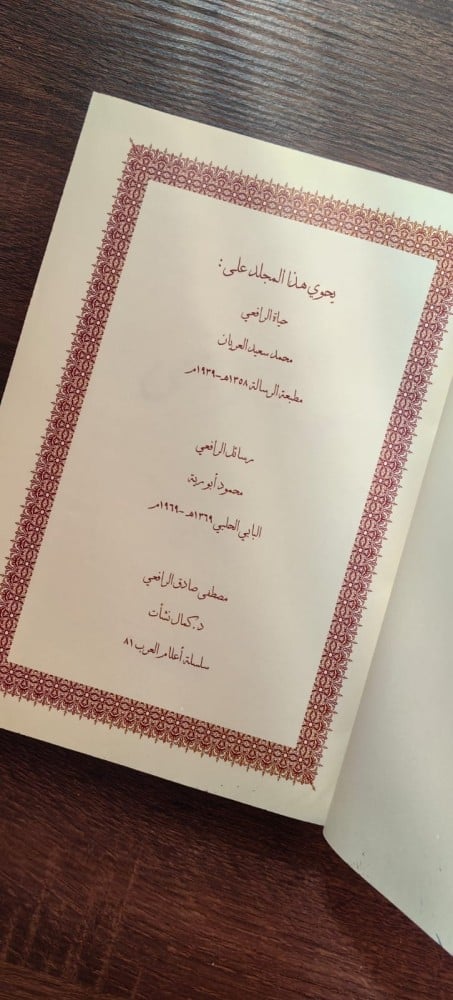 يحوي هذا المجلد على :
حياة الرافعي
محمد سعيد العريان
مطبعة الرسالة ١٣٥٨هـ - ١٩٣٩م
رسائل الرافعي
محمود أبو رية
البابي الحلبي ١٣٦٩هـ - ١٩٦٩م
مصطفى صادق الرافعي
د. كمال نشأت
سلسلة أعلام العرب ٨١